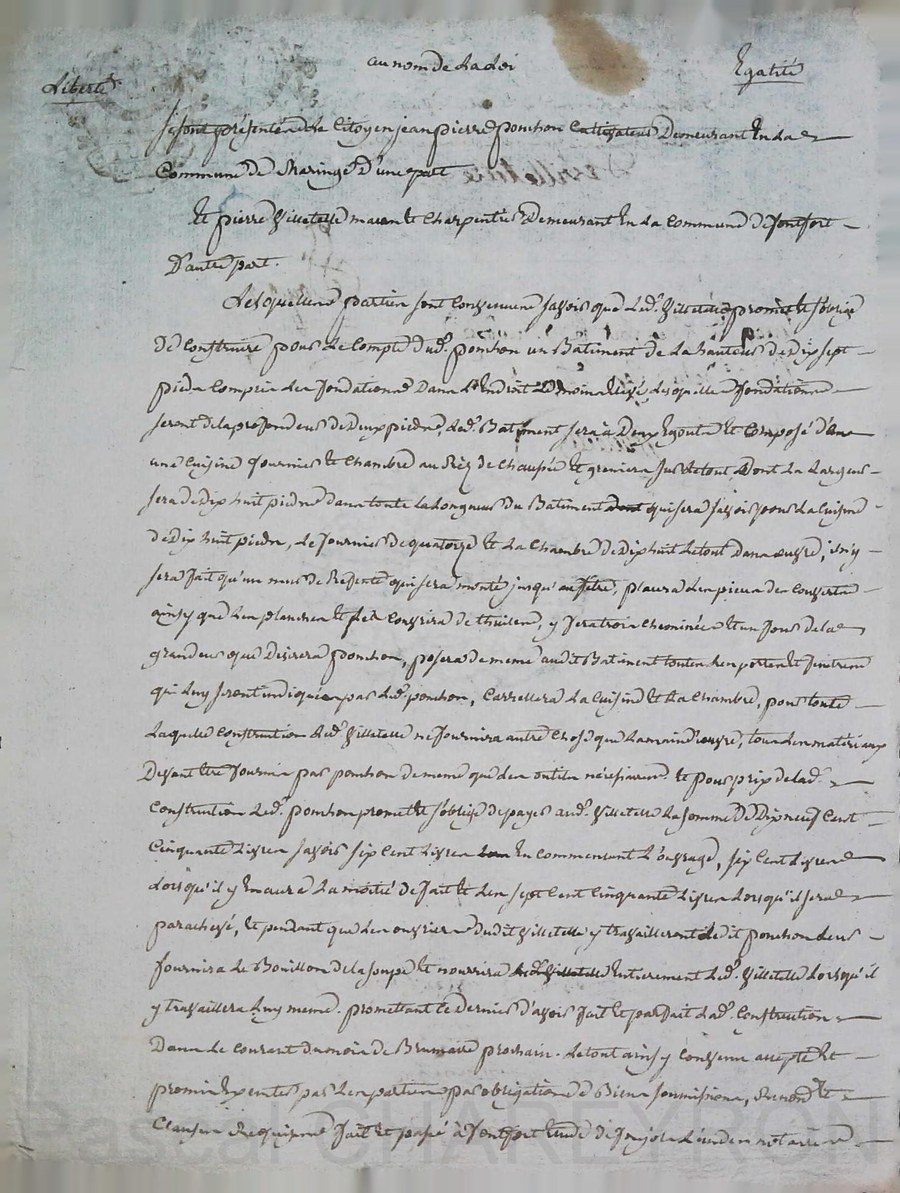 au nom de la Loi
Liberté Egalité
se sont présentés Le Citoyen jean pierre ponchon Cultivateur Demeurant En la
Commune De Maringe D'une part
Et pierre Villetelle masson et Charpentier Demeurant En La Commune De fontfort
D'autre part.
Lesquelles parties sont Convenues savoir que Led. Villetelle promet et s'oblige
De Construire pour Le Compte dud. ponchon un Batiment de La hauteur de Dix sept
pieds Compris Les fondations Dans L'Endroit Le moins élevé, Lesquelles fondations
seront de la profondeur de Deux pieds, Led. Batiment sera à Deux Egouts Et Composé d'une
une Cuisine fournier Et Chambre au Rez de Chaussée Et greniers sur Le tout, Dont La Largeur
sera de Dix huit pieds dans toute La Longueur Du Batiment dont qui sera savoir pour La Cuisine
de Dix huit pieds, Le fournier de quatorze Et La Chambre de Dix huit Le tout Dans œuvre, il n'y
sera fait qu'un mur de Refente qui sera monté jusqu'au fetre, placera Les pieces des Couverts
ainsy que Les planchers Et Les Couvrira de thuiles, y fera trois cheminées Et un four de la
grandeur que Désirera ponchon, posera de meme audit Batiment toutes Les portes Et fenetres
qui Luy seront indiquées par Led. ponchon, Carrellera La Cuisine Et La Chambre, pour toute
Laquelle Construction Led. Villetelle ne fournira autre Chose que La main d'œuvre, tous Les matériaux
Devant Etre fournis par ponchon de meme que Les outils nécessaires. Et pour prix de lad.
Construction Led. ponchon promet et s'oblige de payer aud. Villetelle La somme De Dix neuf Cent
Cinquante Livres savoir six Cent Livres En commensant L'ouvrage, six Cent Livres
Lorsqu'il y En aura La moitié de fait Et Les sept Cent Cinquante Livres Lorsqu'il sera
parachevé, Et pendant que Les ouvriers dudit Villetelle y travailleront Ledit ponchon Leur
fournira Le Bouillon de la soupe Et nourrira Led. Villetelle Entierement Led. Villetelle Lorsqu'il
y travaillera Luy meme. promettant Ce dernier d'avoir fait Et parfait Lad. Construction
Dans Le Courant du mois de Brumaire prochain. Le tout ainsy Convenu accepté Et
promis par Les parties par obligation de Biens soumissions, Renonc. Et
Clauses Requises fait Et passé à fontfort Etude de notaire
Pascal CHAREYRON